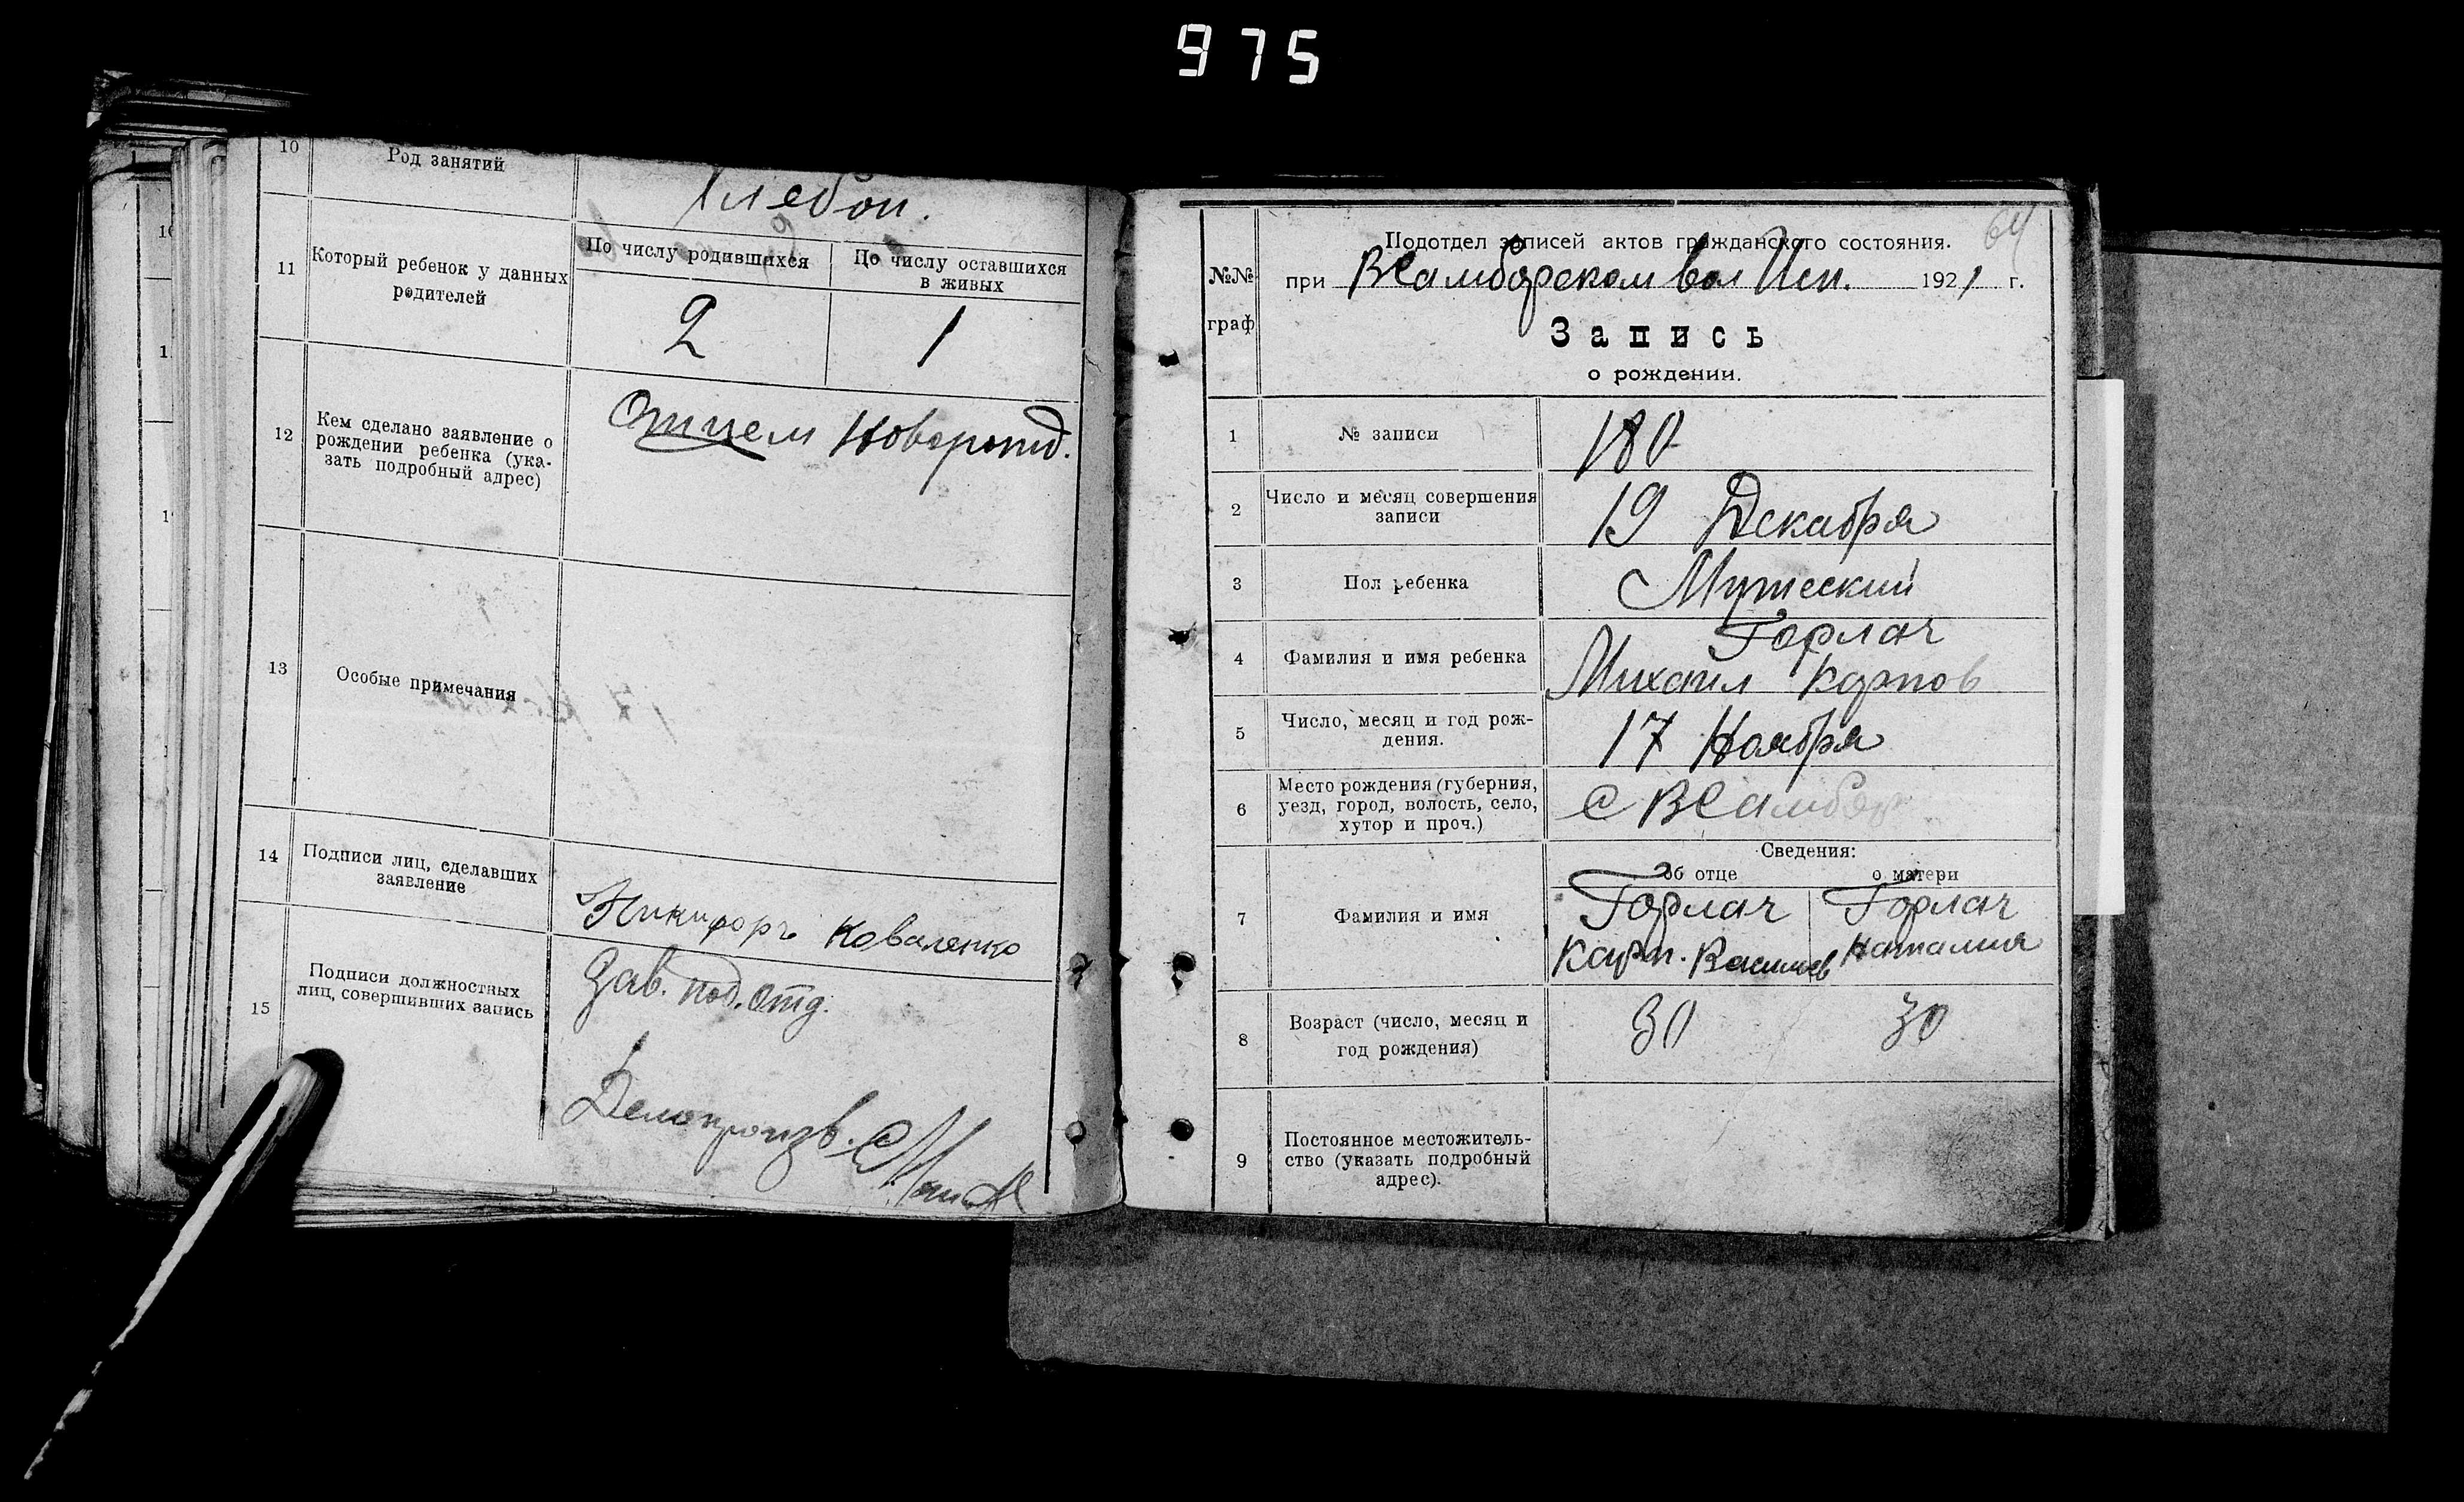 975
10 Род занятий Хлебоп.
11 Который ребенок у данных родителей
По числу родившихся
По числу оставшихся в живых
2 1
12 Кем сделано заявление о
рождении ребенка (ука-
зать подробный адрес)
Отцем Новорожд.
13 Особые примечания
14 Подписи лиц, сделавших
заявление
Никифоръ Коваленко
15 Подписи должностных
лиц, совершивших запись
Зав. под. отд.
Делопроизв.
64
Подотдел записей актов гражданского состояния.
№№
граф
при ВСамборском вол Исп. 1921 г.
Запись
о рождении.
1 № записи 180
2 Число и месяц совершения
записи
19 Декабря
3 Пол ребенка Мужеский
4 Фамилия и имя ребенка
Горлач
Михаил Карпов
5 Число, месяц и год рож-
дения.
17 Ноября
6 Место рождения (губерния,
уезд, город, волость, село,
хутор и проч.)
с ВСамбор
Сведения:
об отце о матери
7 Фамилия и имя
Горлач Горлач
Карп. Васильев Наталия
8 Возраст (число, месяц и
год рождения)
30 30
9 Постоянное местожитель-
ство (указать подробный
адрес).